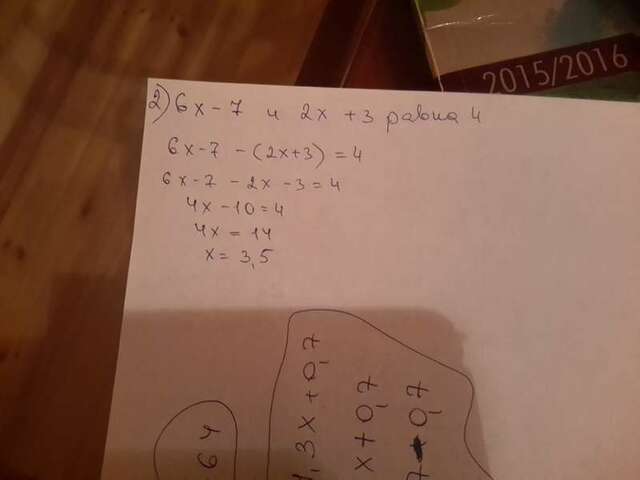 2015/2016
2) 6x-7 и 2x+3 равна 4
6x-7-(2x+3)=4
6x-7-2x-3=4
4x-10=4
4x=14
x=3,5
3x+0,7
x+0,7
0,7
64